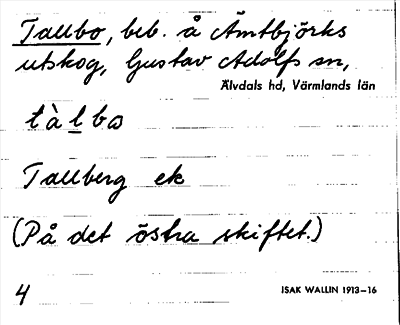 Tallbo, beb. å Ämtbjörks
utskog, Gustav Adolfs sn,
Älvdals hd, Värmlands län
tàlbo
Tallberg ek
(På det östra skiftet.)
4 ISAK WALLIN 1913–16